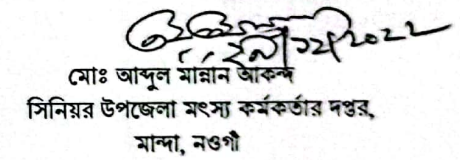 মোঃ আব্দুল মান্নান আকন্দ
সিনিয়র উপজেলা মৎস্য কর্মকর্তার দপ্তর,
মান্দা, নওগাঁ